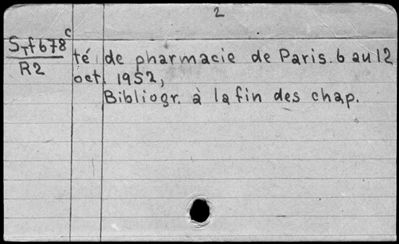 2
STf678c
R2
té de pharmacie de Paris. 6 au 12
oct. 1952,
Bibliogr. à la fin des chap.